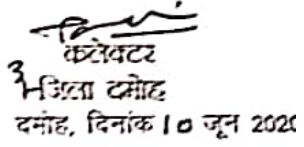 कलेक्टर
जिला दमोह
दमोह, दिनांक 10 जून 2020